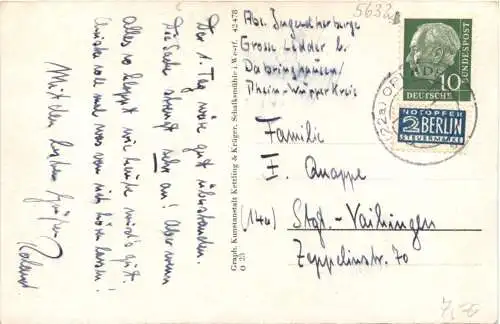 Der 1. Tag wäre gut überstanden.
Die Sache strengt sehr an! Aber wenn
alles so klappt wie heute wird's gut.
will mal was von sich hören lassen!
Mit den besten Grüßen
Roland
Graph. Kunstanstalt Kettling & Krüger, Schalksmühle i. Westf. 42 478
O 21
5632
Abs. Jugendherberge
Grosse Ledder b.
Dabringhausen/
Rhein-Wupper Kreis
Familie
F. Quappe
(14a) Stgt.-Vaihingen
Zeppelinstr. 70
DEUTSCHE
BUNDESPOST
10
(22a) OP
NOTOPFER
2 BERLIN
STEUERMARKE